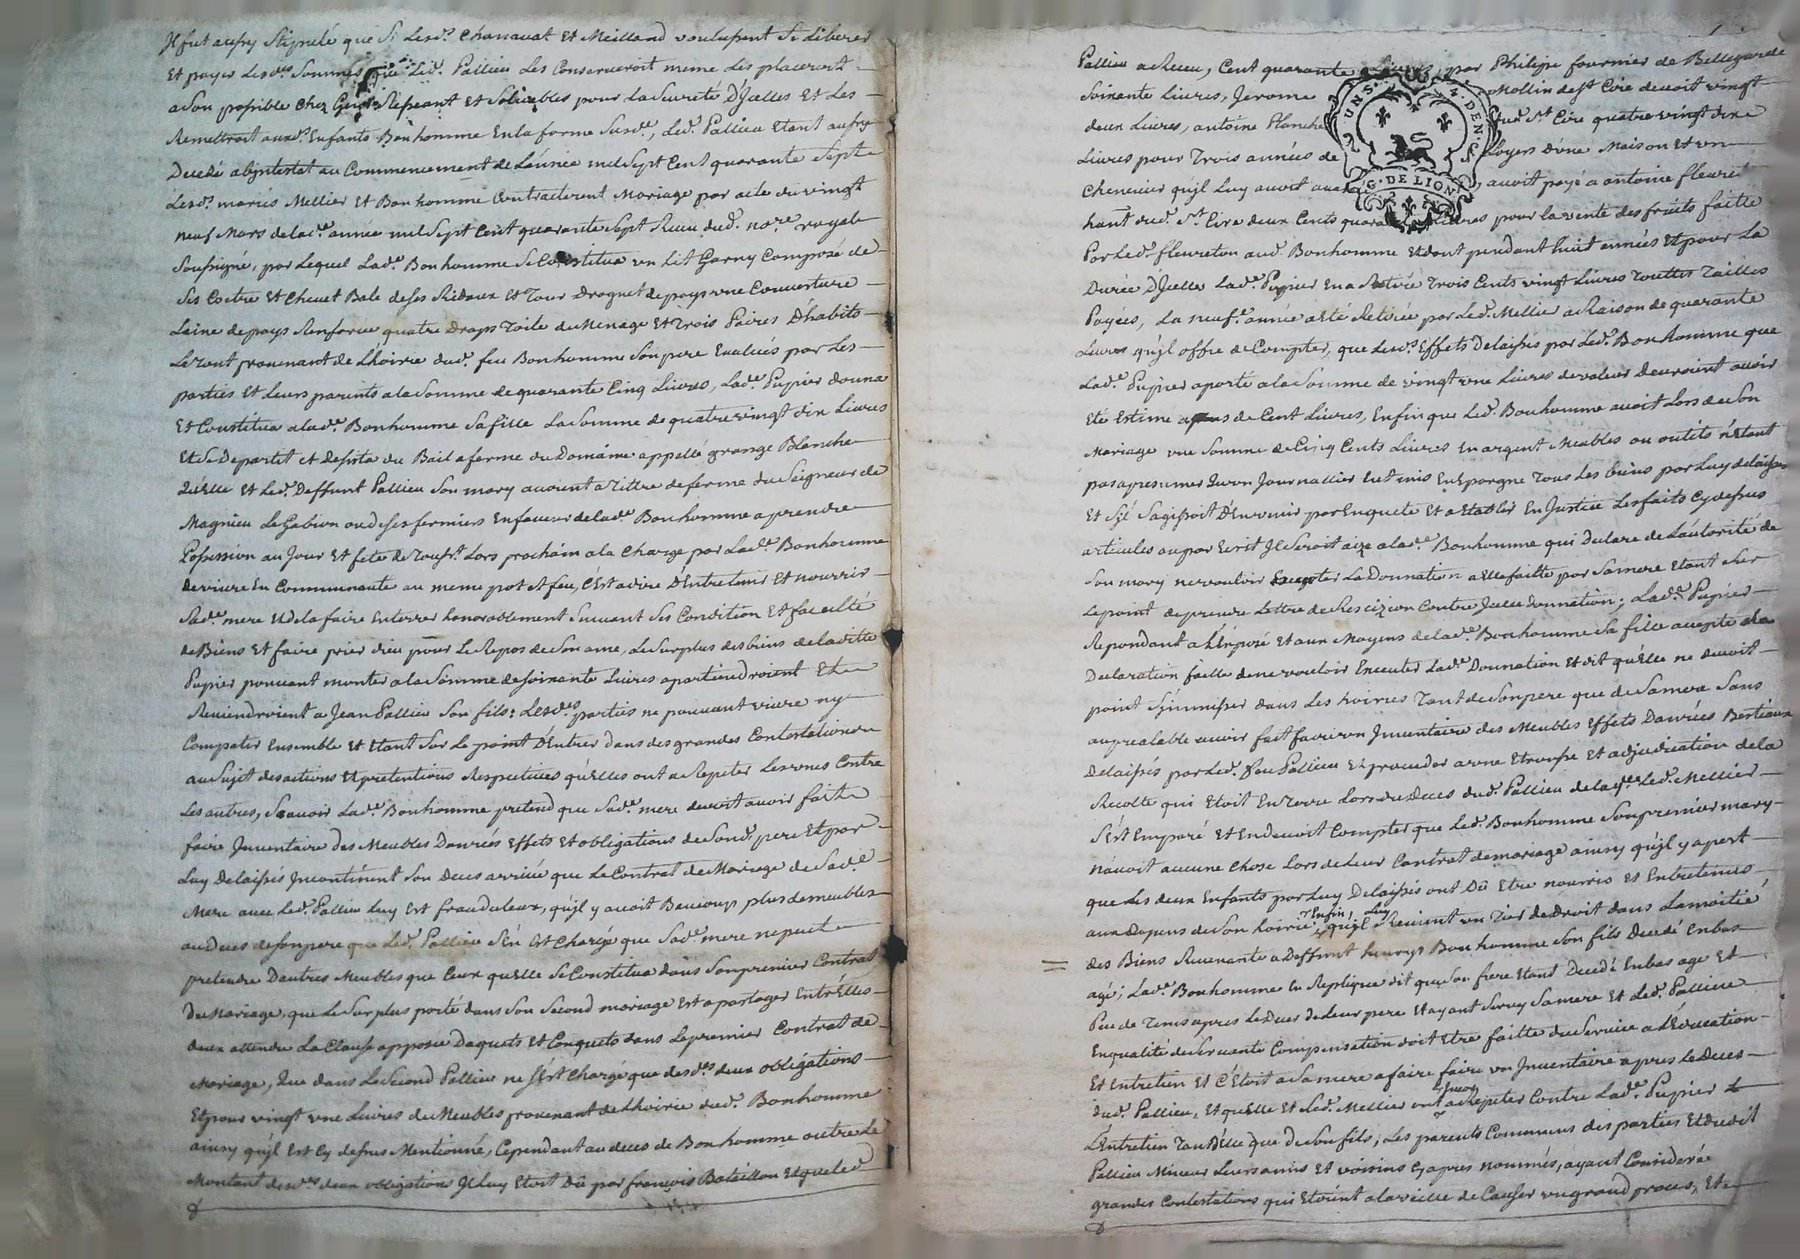 Il fut aussy stipulé que si lesd. Chanavat et Meilland voulussent se liberer
et payer lesdes sommes que led. Pallieu les conserveroit meme les placeroit
a son possible chez gens Reseant et solvables pour la sureté d'jcelles et les
Remettroit auxd. Enfants Bonhomme en la forme susde, led. Pallieu etant aussy
Decedé abjntestat au commencement de l'année mil sept cent quarante sept
lesd. mariés Mellier et Bonhomme contracterent mariage par acte du vingt
neuf Mars de lade année mil sept cent quarante sept Receu dud. nore royal
soussigné, par lequel lade Bonhomme se Constitua un lit Garny composé de
ses coitre et chevet Bale de ses Rideaux et Tour droguet de pays une couverture
laine de pays Renforcée quatre draps toile du menage et trois paires d'habits
le tout provenant de l'hoirie dud. feu Bonhomme son pere Evalués par les
parties et leurs parents a la somme de quarante cinq livres, lade Pupier donna
et Constitua a lade Bonhomme sa fille la somme de quatre vingt dix livres
et se departit et desista du Bail a ferme du Domaine appellé grange Blanche
qu'elle et led. deffunt Pallieu son mary avoient a tittre de ferme du seigneur de
Magnieu le Gabion ou de ses fermiers en faveur de lade Bonhomme a prendre
Possession au jour et fete de Toussts lors prochain a la charge par lade Bonhomme
de vivre en communauté au meme pot et feu, c'est a dire d'entretenir et nourrir
sade mere et de la faire enterrer honorablement suivant ses condition et faculté
de Biens et faire prier dieu pour le Repos de son ame, le surplus des biens de laditte
Pupier pouvant monter a la somme de soixante livres apartiendroient et
Reviendroient a Jean Pallieu son fils: lesdes parties ne pouvant vivre ny
compatir ensemble et etant sur le point d'entrer dans des grandes contestations
au sujet des actions et pretentions Respectives qu'elles ont a Repeter les unes contre
les autres, scavoir lade Bonhomme pretend que sade mere devoit avoir fait
faire Inventaire des Meubles Danrées Effets et obligations de sond. pere et par
luy Delaissés Jncontinent son deces arrivé que le contrat de Mariage de sade
Mere avec led. Pallieu luy est frauduleux, qu'il y avoit Beaucoup plus de meubles
au deces de son pere que led. Pallieu s'en est chargé que sade mere ne peut
pretendre dautres Meubles que ceux qu'elle se constitua dans son premier contrat
de Mariage, que le surplus porté dans son second mariage est a partager entr'elles
deux attendu la clause apposée daquets et conquets dans le premier contrat de
Mariage, que dans le second Pallieu ne s'est chargé que desdes deux obligations
et pour vingt une livres de Meubles provenant de l'hoirie dud. Bonhomme
ainsy qu'il est cy dessus Mentionné, cependant au deces de Bonhomme outre le
Montant desdes deux obligations Il luy etoit dû par françois Bataillon et que led
Pallieu a Receu, cent quarante livres par Philipe fournier de Bellegarde
soixante livres, Jerome Mollin de st Cire devoit vingt
deux livres, antoine Planche dud. St Cire quatre vingt dix
livres pour trois années de loyers d'une Maison et un
Chenevier qu'il luy avoit avoit payé a antoine fleuri
hant dud. St Cire deux cents quarante livres pour la vente des fruits faitte
Par led. fleureton aud. Bonhomme et dont pendant huit années et pour la
Durée d'jcelle lade Pupier en a Retiré trois cents vingt livres touttes tailles
Payées, la neufe année a eté Retirée par led. Mellier a Raison de quarante
livres qu'il offre de compter, que lesd. Effets Delaissés par led. Bonhomme que
lade Pupier a porté a la somme de vingt une livres de valeur devroient avoir
eté estimé a plus de cent livres, Enfin que led. Bonhomme avoit lors de son
Mariage une somme de cinq cents livres en argent Meubles ou outils n'etant
pas a presumer qu'un journallier eut mis en Epargne tous les biens par luy delaissés
et s'il s'agissoit d'en venir par enquete et a etablir en justice les faits cy dessus
articulés ou par ecrit Il seroit aizé a lade Bonhomme qui declare de l'autorité de
son mary ne vouloir Executer la Donnation a elle faitte par sa mere etant sur
le point de prendre lettre de Rescizion contre jcelle donnation; lade Pupier
Repondant a l'éxposé et aux Moyens de lade Bonhomme sa fille accepte sa
declaration faitte de ne vouloir Executer lade Donnation et dit qu'elle ne devoit
point s'jmmisser dans les hoiries tant de son pere que de sa mere sans
au prealable avoir fait faire un Jnventaire des Meubles Effets Danrées Bestiaux
delaissés par led. feu Pallieu et proceder a une etrousse et adjudication de la
Recolte qui etoit en terre lors du deces dud. Pallieu de laqle led. Mellier
s'est emparé et en devoit compter que led. Bonhomme son premier mary
n'avoit aucune chose lors de leur contrat de mariage ainsy qu'il y apert
que les deux Enfants par luy Delaissés ont dû etre nourris et entretenus
aux depens de son hoirie, Enfin, qu'il luy Revient un tier de droit dans la moitié
des Biens Revenants a deffunt henrys Bonhomme son fils decedé en bas
agé; lade Bonhomme en Replique dit que son frere etant decedé en bas age et
Peu de tems apres le deces de leur pere et ayant servy sa mere et led. Pallieu
en qualité de servante compensation doit etre faitte du service a l'education
et entretien et c'étoit a sa mere a faire faire un Inventaire apres le deces
dud. Pallieu, et qu'elle et led. Mellier ont a Repeter contre lade Pupier
l'Entretien tant d'elle que de son fils, les parents communs des parties et dudit
Pallieu Mineur leurs amis et voisins cy apres nommés, ayant consideré
grandes contestations qui etoient a la veille de causer un grand proces, et
UNS. DEN.
G. DE LION